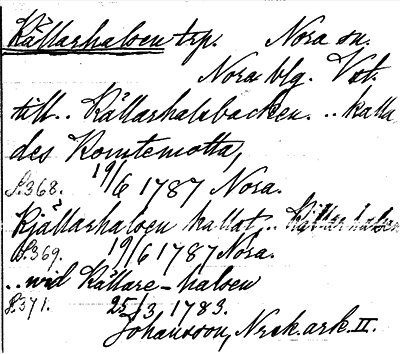 Källarhalsen trp. Nora sn.
Nora blg. Vst.
till .. Källarhalsbacken .. kalla
des Romtemotta,
S. 368. 19/6 1787 Nora.
Kjällarhalsen kallat .. Källarhalsen
S. 369. 19/6 1787 Nora.
.. wid Källare-halsen
S. 371. 25/3 1783.
Johansson, Nrsk. ark. II.